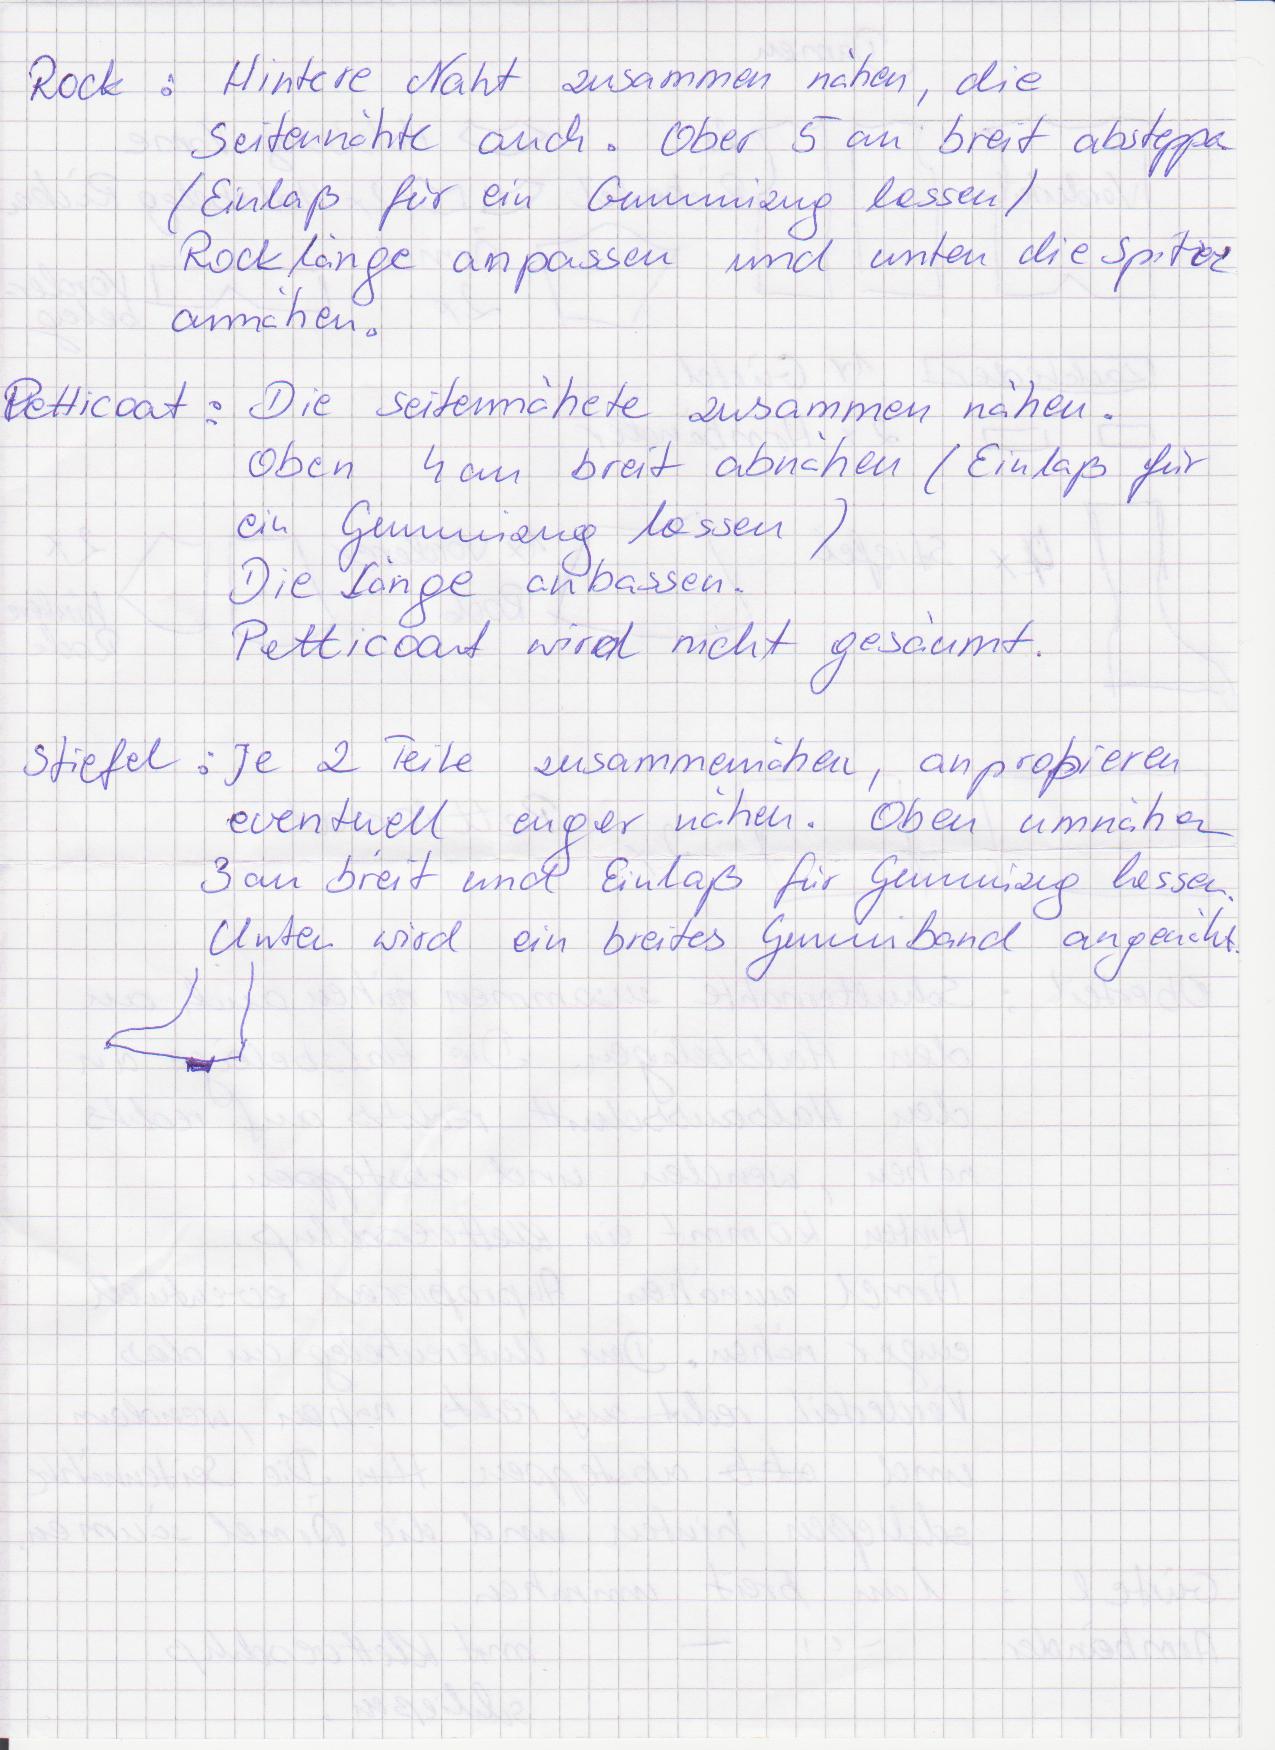 Rock : Hintere Naht zusammen nähen, die
Seitennähte auch. Ober 5 cm breit absteppen
(Einlaß für ein Gummizug lassen)
Rocklänge anpassen und unten die Spitze
annähen.
Petticoat : Die seitennähete zusammen nähen.
Oben 4 cm breit abnähen (Einlaß für
ein Gummizug lassen)
Die Länge anbassen.
Petticoat wird nicht gesäumt.
Stiefel : Je 2 Teile zusammennähen, anprobieren
eventuell enger nähen. Oben umnähen
3 cm breit und Einlaß für Gummizug lassen.
Unten wird ein breites Gummiband angenäht.